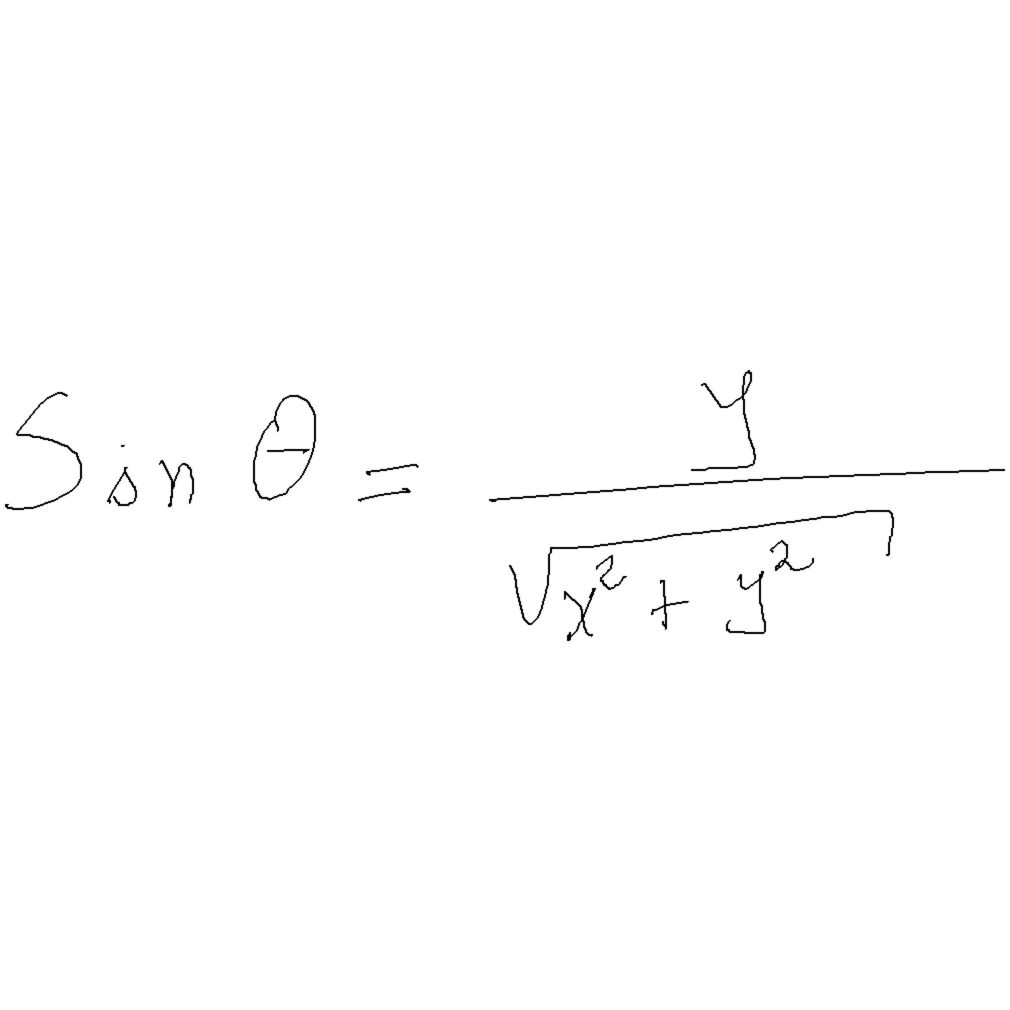 Sin θ = y / √(x² + y²)